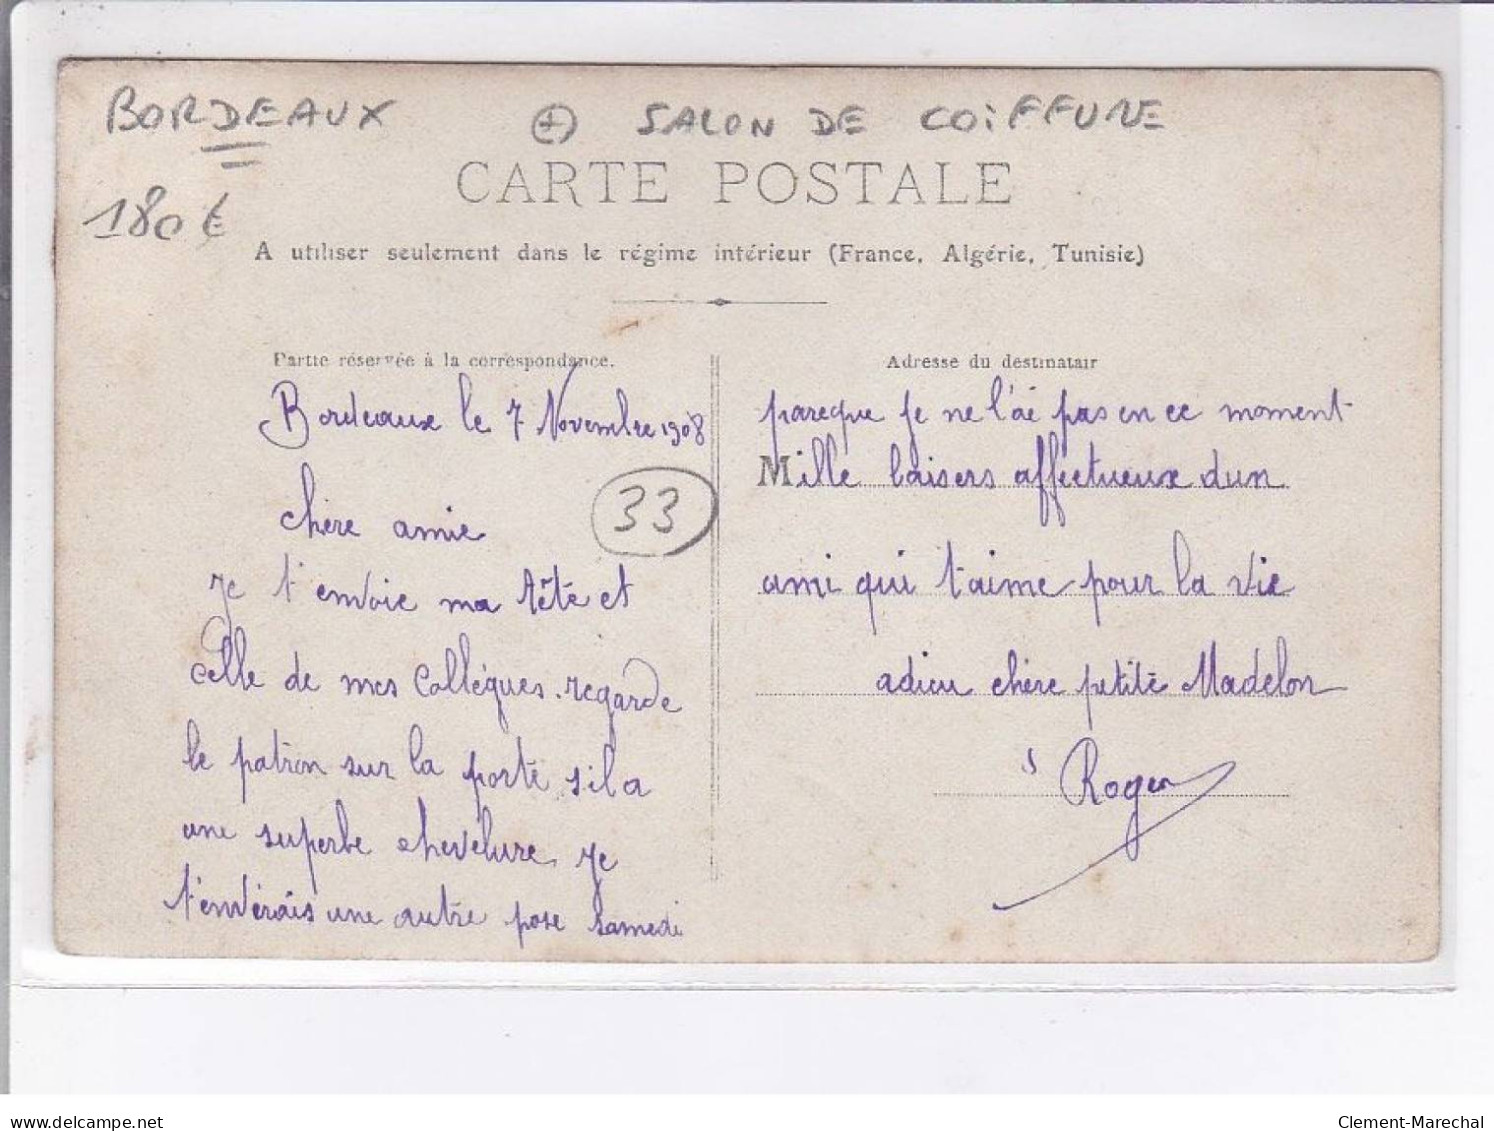 BORDEAUX + SALON DE COIFFURE
180€
CARTE POSTALE
A utiliser seulement dans le régime intérieur (France, Algérie, Tunisie)
Partie réservée à la correspondance.
Bordeaux le 7 Novembre 1908
chère amie
33
Je t'envoie ma tête et
celle de mes collègues. regarde
le patron sur la porte s'il a
une superbe chevelure. Je
t'envérais une autre pose samedi
Adresse du destinatair
pareque je ne l'ai pas en ce moment
Mille baisers affectueux dun
ami qui t'aime pour la vie
adieu chère petite Madelon
s Roger
delcampe.net
Clement-Marechal